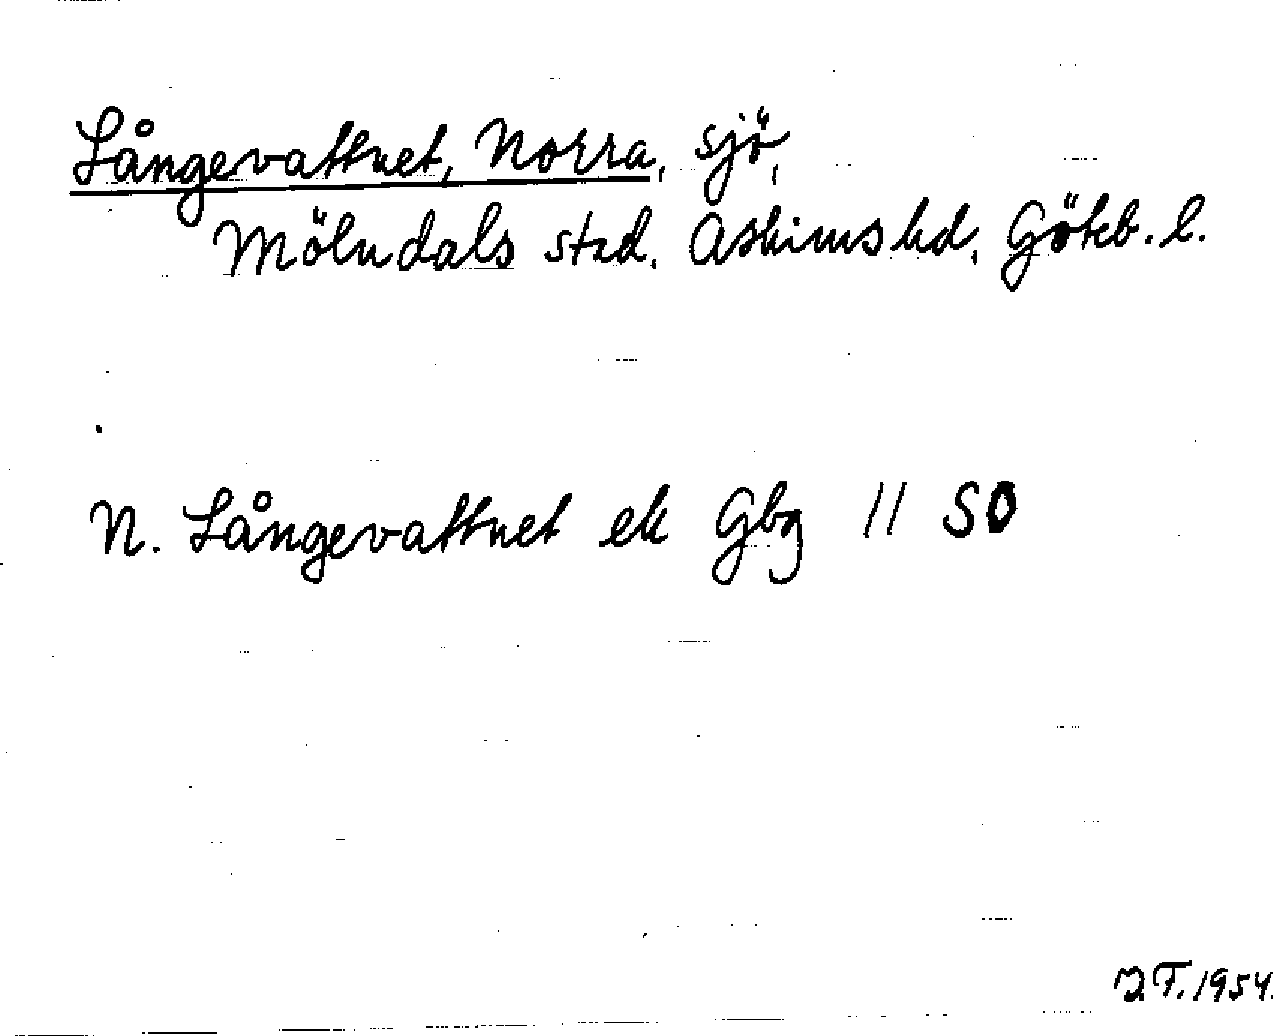 Långevattnet, Norra, sjö,
Mölndals stad, Askims hd, Göteb. l.
N. Långevattnet ek Gbg // SO
T. 1954.